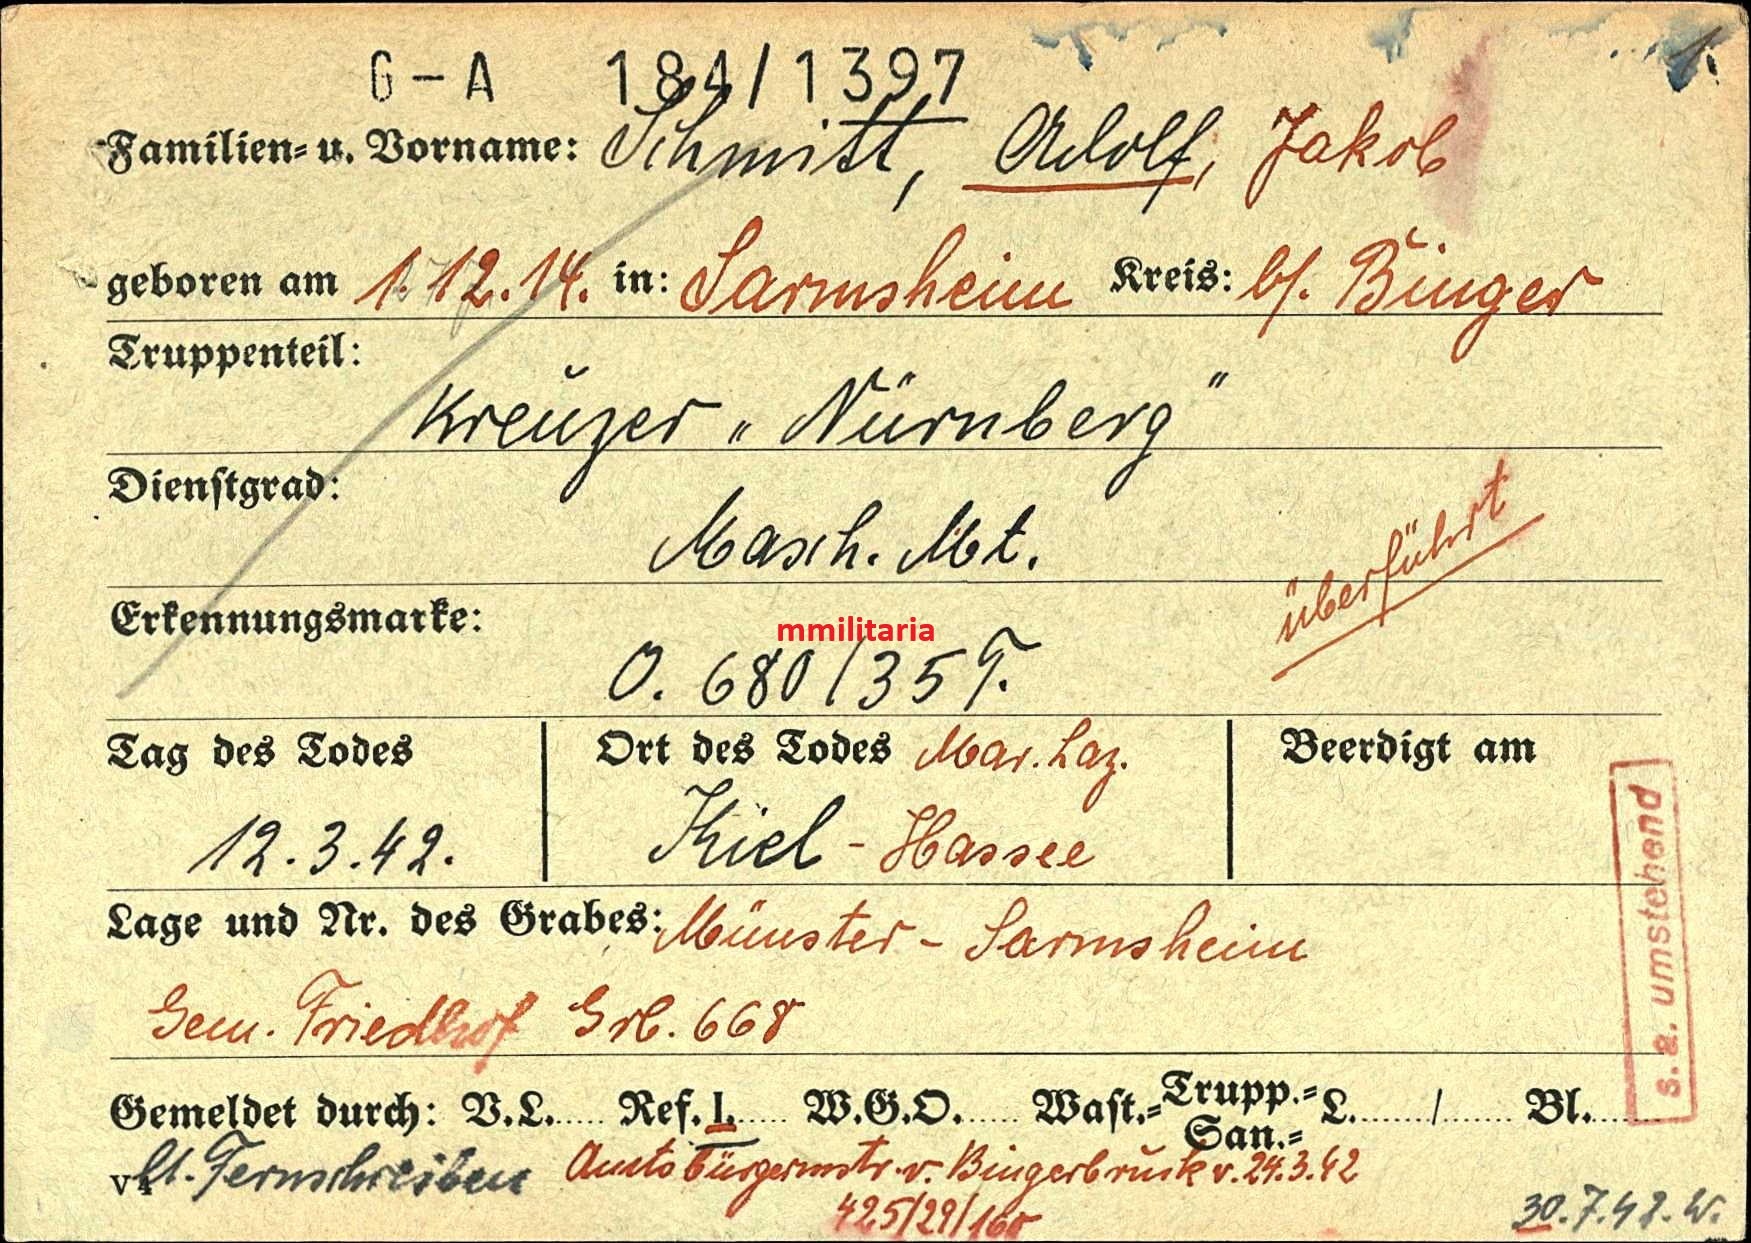 G-A 184/1397
1.
Familien- u. Vorname: Schmitt, Adolf, Jakob
geboren am 1.12.14. in: Sarmsheim Kreis: b/. Binger
Truppenteil:
Kreuzer „Nürnberg"
Dienstgrad:
Masch. Mt.
überführt
Erkennungsmarke:
mmilitaria
O. 680/35 T.
Tag des Todes Ort des Todes Mar. Laz. Beerdigt am
12.3.42. Kiel - Hassee
Lage und Nr. des Grabes: Münster - Sarmsheim
Gem. Friedhof Grb. 668
s. a. umstehend
Gemeldet durch: V.L..... Ref. I...... W.G.O...... Wast.- Trupp.- San.- L......../....... Bl.......
lt. Fernschreiben Amtsbürgermstr. v. Bingerbrück v. 24.3.42
425/29/160
30.7.42. W.